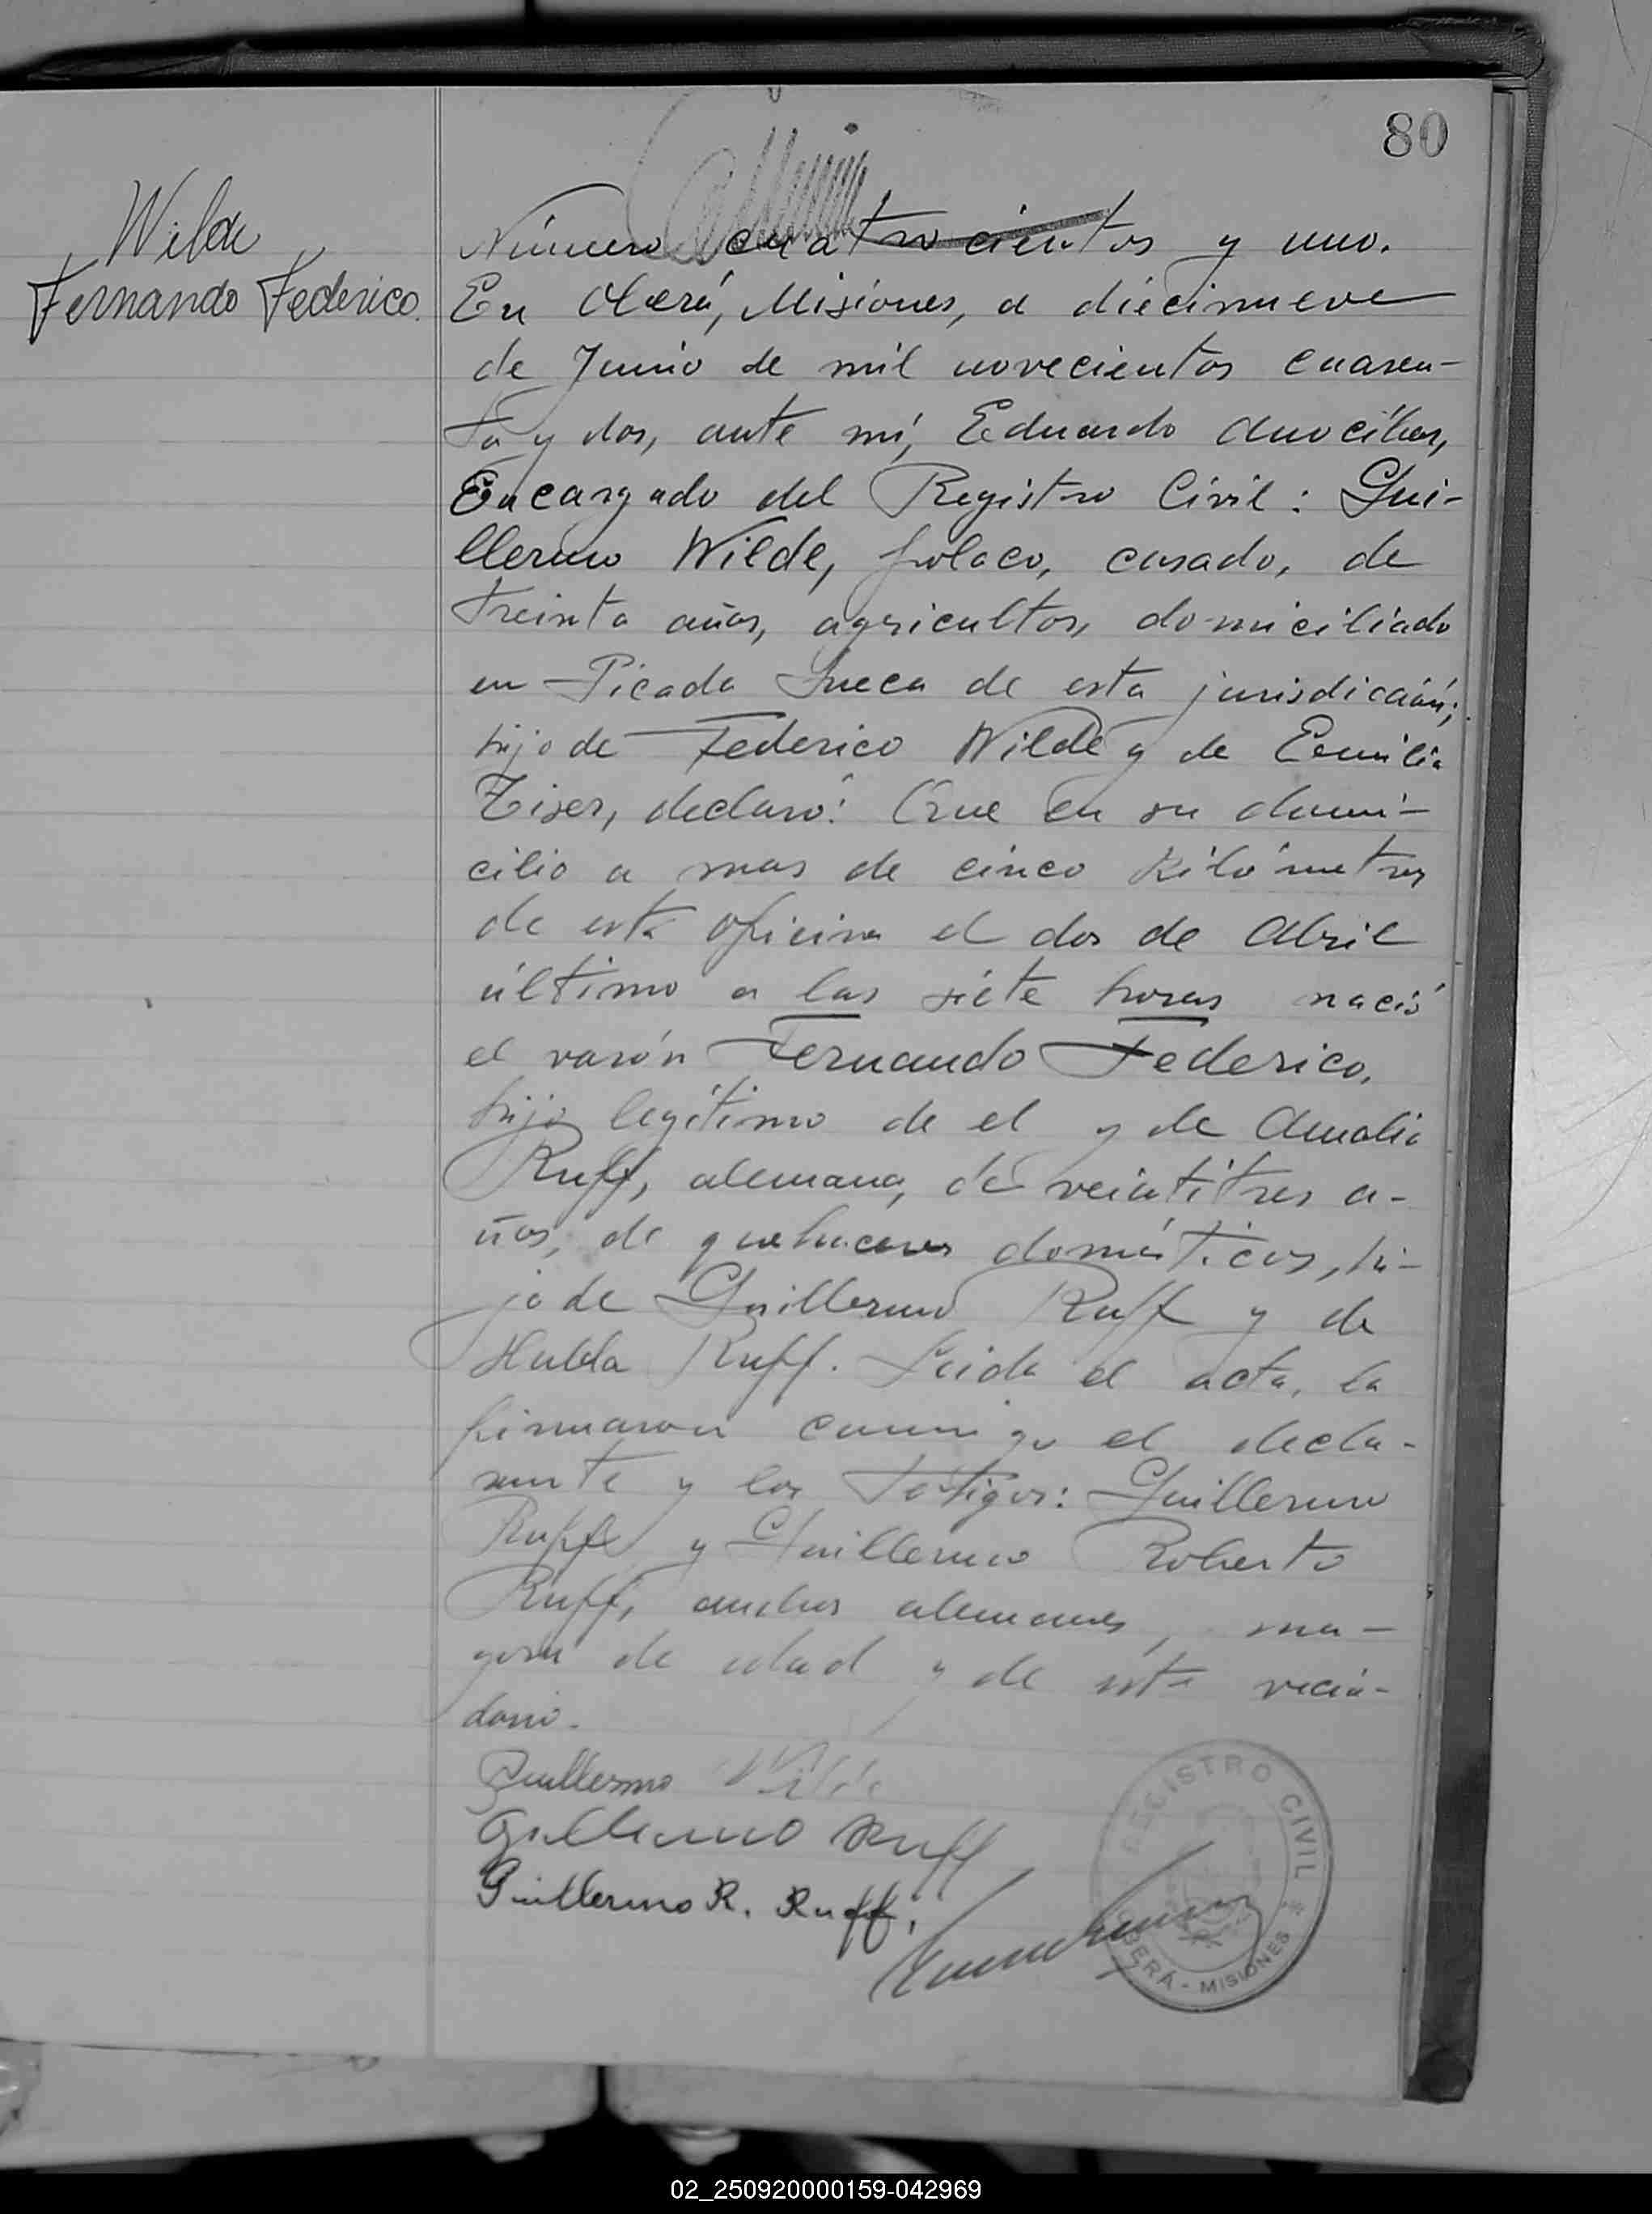 80
Wilde
Fernando Federico.
Número cuatrocientos y uno.
En Oberá, Misiones, a diecinueve
de Junio de mil novecientos cuaren-
ta y dos, ante mí, Eduardo
Encargado del Registro Civil: Gui-
llermo Wilde, polaco, casado, de
treinta años, agricultor, domiciliado
en Picada Sueca de esta jurisdicción;
hijo de Federico Wilde y de Emilia
declaró: Que en su domi-
cilio a mas de cinco kilómetros
de esta oficina el dos de Abril
último a las siete horas nació
el varón Fernando Federico,
hijo legítimo de el y de Amalia
Ruff, alemana, de veintitres a-
ños, de quehaceres domésticos, hi-
ja de Guillermo Ruff y de
Hulda Ruff. Leida el acta, la
firmaron conmigo el decla-
rante y los testigos: Guillermo
Ruff y Guillermo Roberto
Ruff, ambos alemanes, ma-
yores de edad y de este vecin-
dario.
Guillermo Wilde
Guillermo Ruff
Guillermo R. Ruff.
REGISTRO CIVIL
OBERÁ - MISIONES
02_250920000159-042969